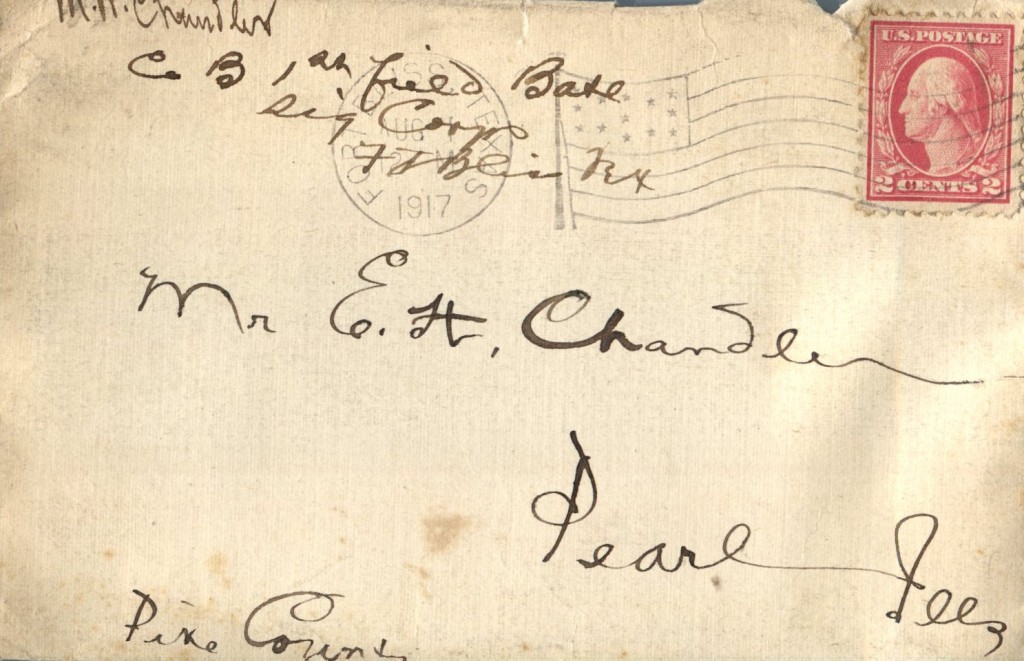 M.H. Chandler
Co B 1st field Batt
Sig Corps
Ft Bliss Tex
FORT BLISS TEXAS
AUG
1917
U.S. POSTAGE
2 CENTS 2
Mr E. H. Chandler
Pearl Ills
Pike County